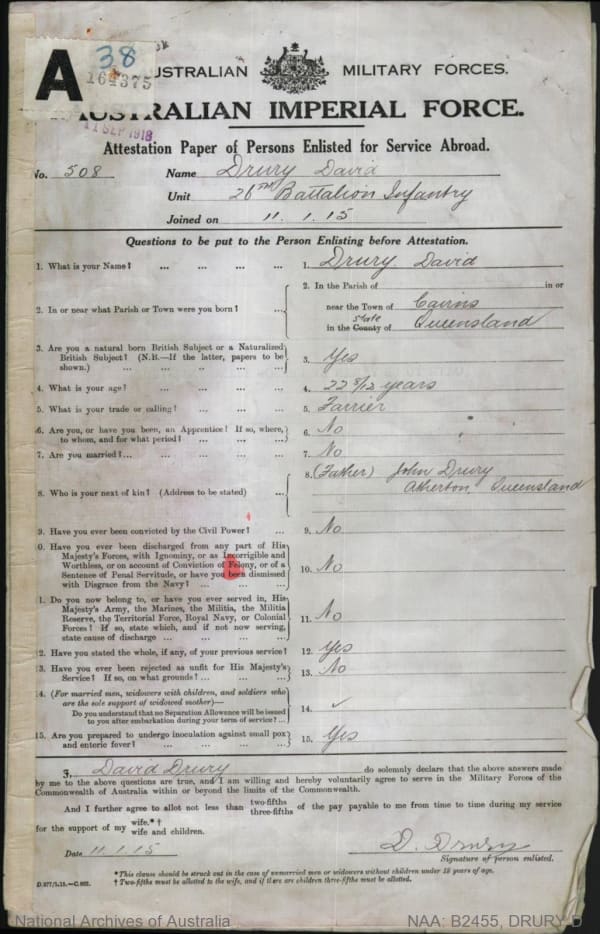 38
A
16 375
AUSTRALIAN MILITARY FORCES.
AUSTRALIAN IMPERIAL FORCE.
11 SEP 1918
Attestation Paper of Persons Enlisted for Service Abroad.
No. 508 Name Drury David
Unit 26TH Battalion Infantry
Joined on 11.1.15
Questions to be put to the Person Enlisting before Attestation.
1. What is your Name? ... ... ... ... 1. Drury. David
2. In or near what Parish or Town were you born? ... 2. In the Parish of in or
near the Town of Cairns
in the County of state Queensland
3. Are you a natural born British Subject or a Naturalized
British Subject? (N.B.—If the latter, papers to be
shown.) ... ... ... ... ... 3. Yes
4. What is your age? ... ... ... ... 4. 22 5/12 years
5. What is your trade or calling? ... ... ... 5. Farrier
6. Are you, or have you been, an Apprentice? If so, where,
to whom, and for what period? ... ... ... 6. No
7. Are you married?... ... ... ... ... 7. No
8. Who is your next of kin? (Address to be stated) ... 8. (Father) John Drury
Atherton, Queensland
9. Have you ever been convicted by the Civil Power? ... 9. No
0. Have you ever been discharged from any part of His
Majesty's Forces, with Ignominy, or as Incorrigible and
Worthless, or on account of Conviction of Felony, or of a
Sentence of Penal Servitude, or have you been dismissed
with Disgrace from the Navy? ... ... ... 10. No
1. Do you now belong to, or have you ever served in, His
Majesty's Army, the Marines, the Militia, the Militia
Reserve, the Territorial Force, Royal Navy, or Colonial
Forces? If so, state which, and if not now serving,
state cause of discharge ... ... ... ... 11. No
2. Have you stated the whole, if any, of your previous service? 12. Yes
3. Have you ever been rejected as unfit for His Majesty's
Service? If so, on what grounds? ... ... ... 13. No
4. (For married men, widowers with children, and soldiers who
are the sole support of widowed mother)—
Do you understand that no Separation Allowance will be issued
to you after embarkation during your term of service? ... 14. ✓
15. Are you prepared to undergo inoculation against small pox
and enteric fever? ... ... ... ... 15. Yes
I, David Drury do solemnly declare that the above answers made
by me to the above questions are true, and I am willing and hereby voluntarily agree to serve in the Military Forces of the
Commonwealth of Australia within or beyond the limits of the Commonwealth.
And I further agree to allot not less than two-fifths three-fifths of the pay payable to me from time to time during my service
for the support of my wife.*† wife and children.
Date 11.1.15 D. Drury
Signature of person enlisted.
*This clause should be struck out in the case of unmarried men or widowers without children under 18 years of age.
† Two-fifths must be allotted to the wife, and if there are children three-fifths must be allotted.
National Archives of Australia NAA: B2455, DRURY D